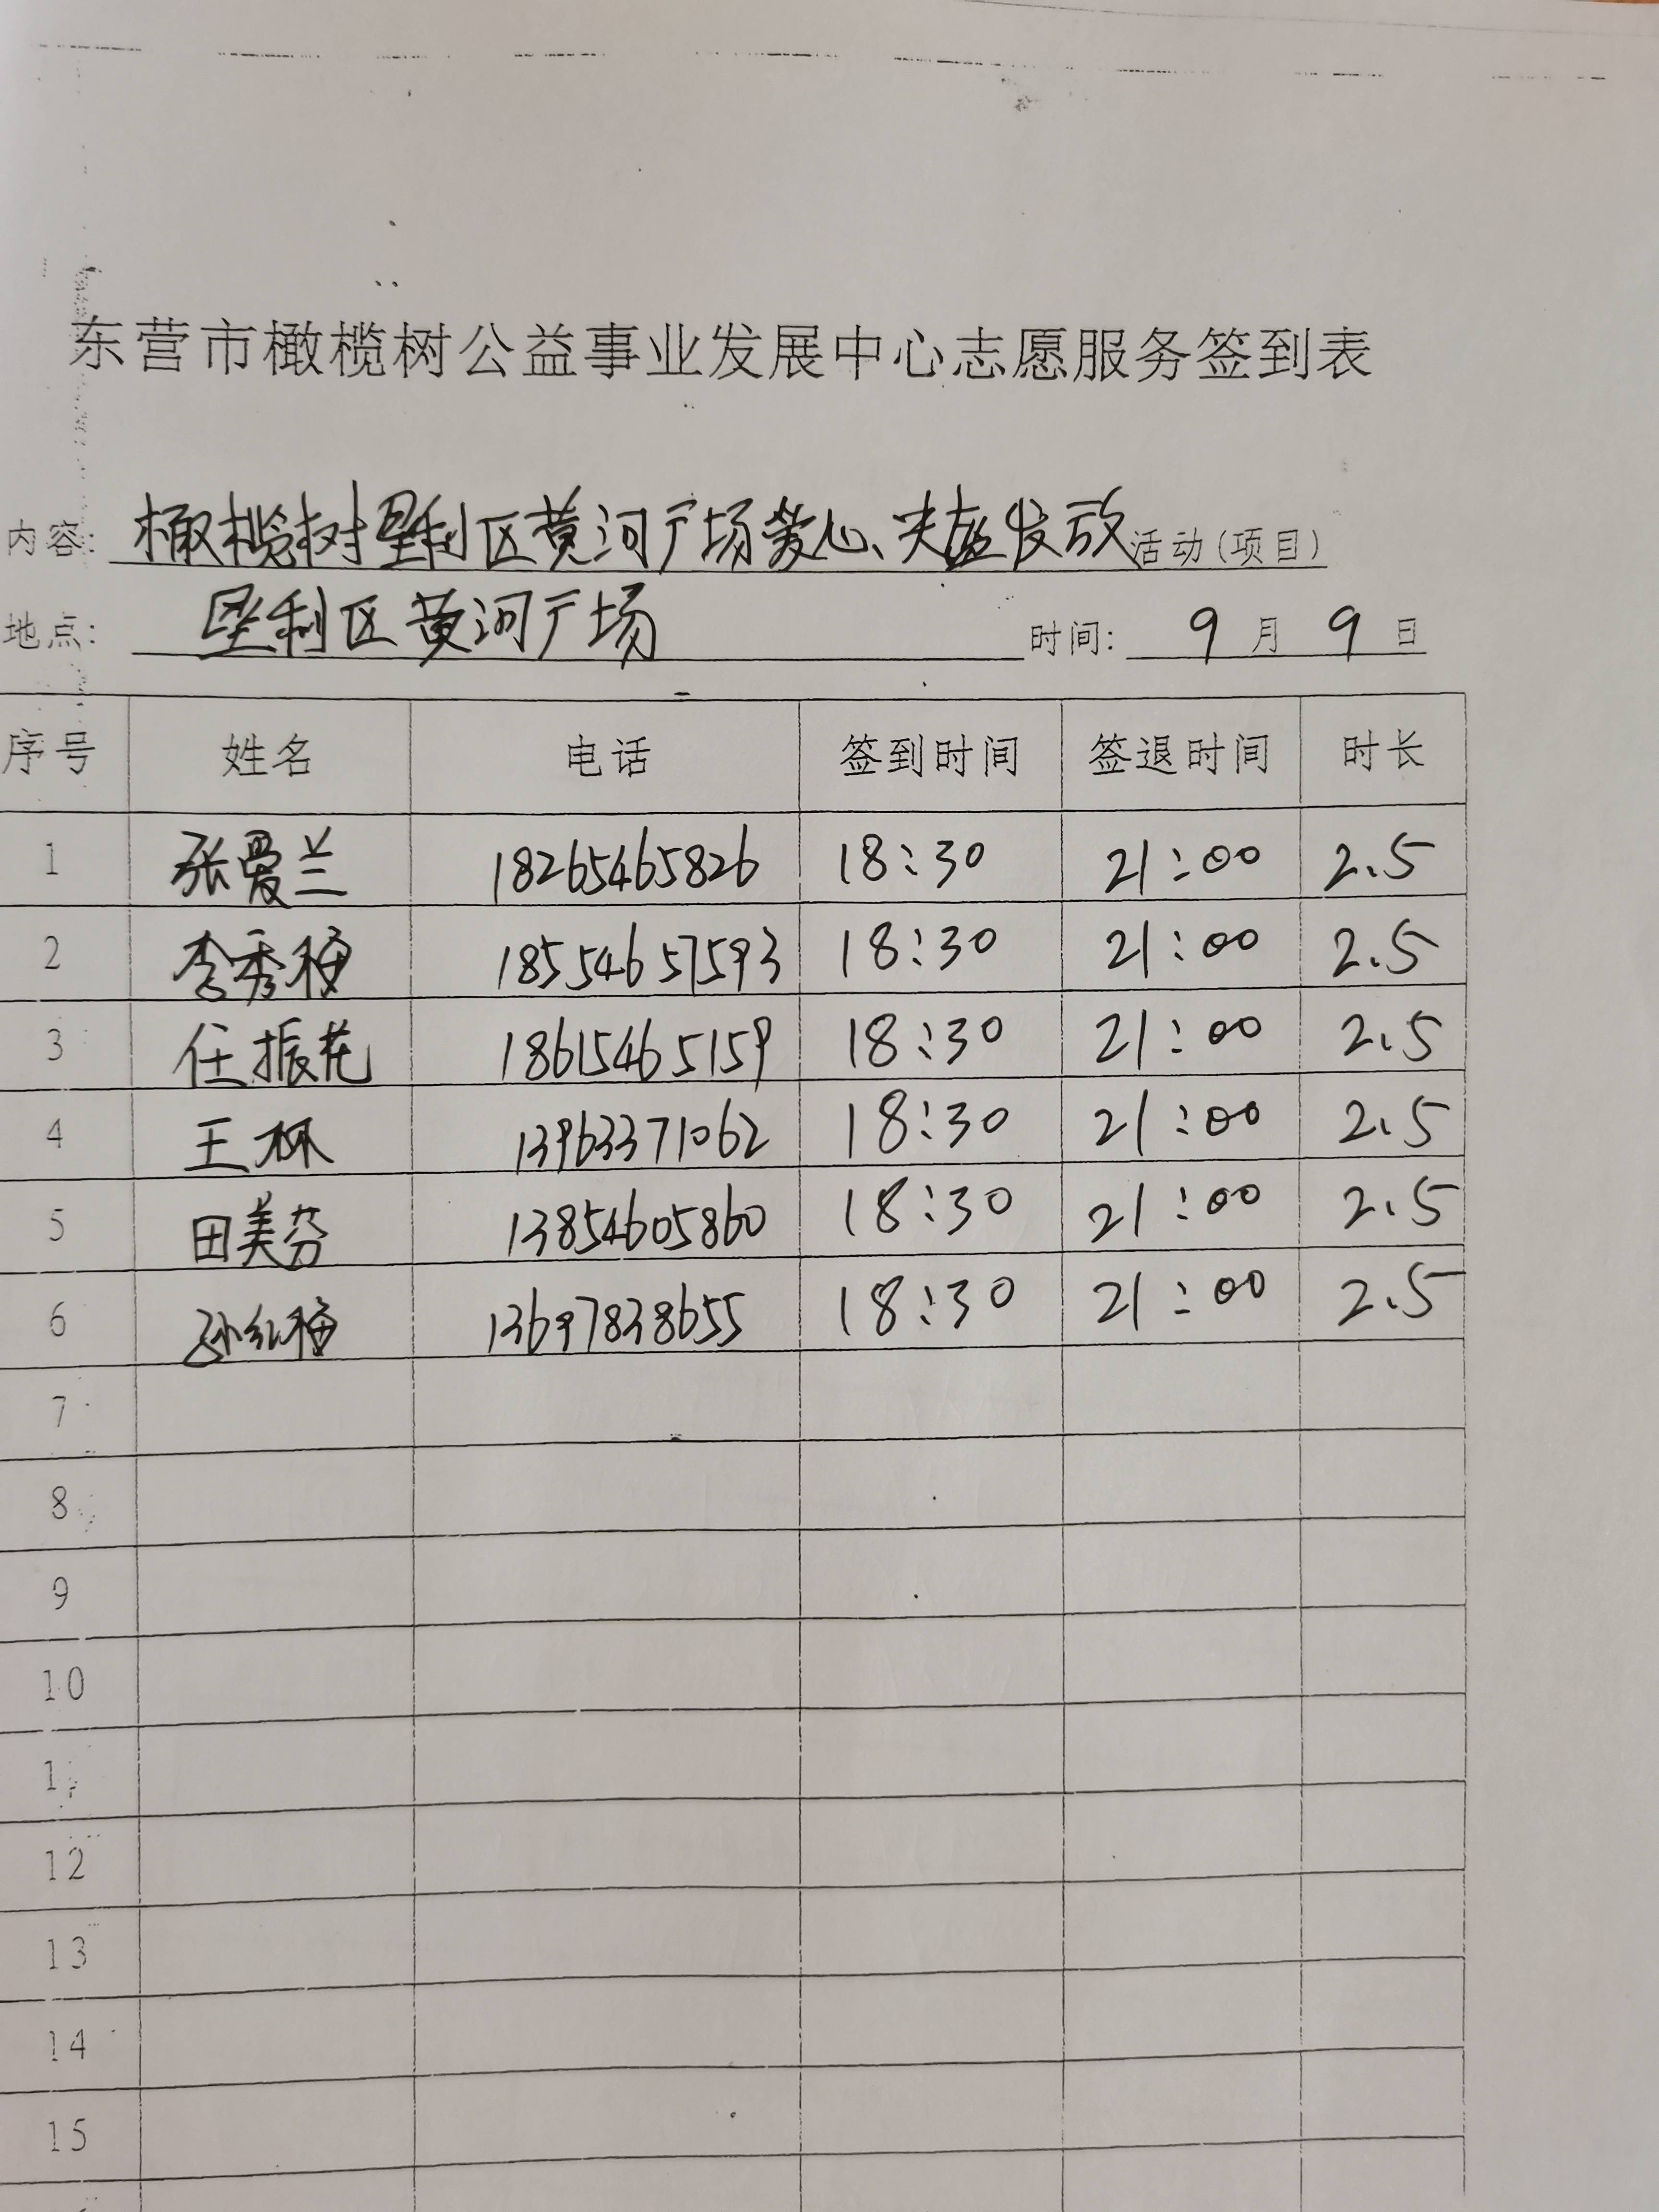 东营市橄榄树公益事业发展中心志愿服务签到表
内容: 橄榄树垦利区黄河广场爱心、夹发放活动(项目)
地点: 垦利区黄河广场 时间: 9月9日
序号 姓名 电话 签到时间 签退时间 时长
1 张爱兰 18265465826 18:30 21:00 2.5
2 李秀梅 18554657593 18:30 21:00 2.5
3 任振花 18615465159 18:30 21:00 2.5
4 王林 13963371062 18:30 21:00 2.5
5 田美芬 13854605860 18:30 21:00 2.5
6 孙红梅 13697838655 18:30 21:00 2.5
7
8
9
10
12
13
14
15